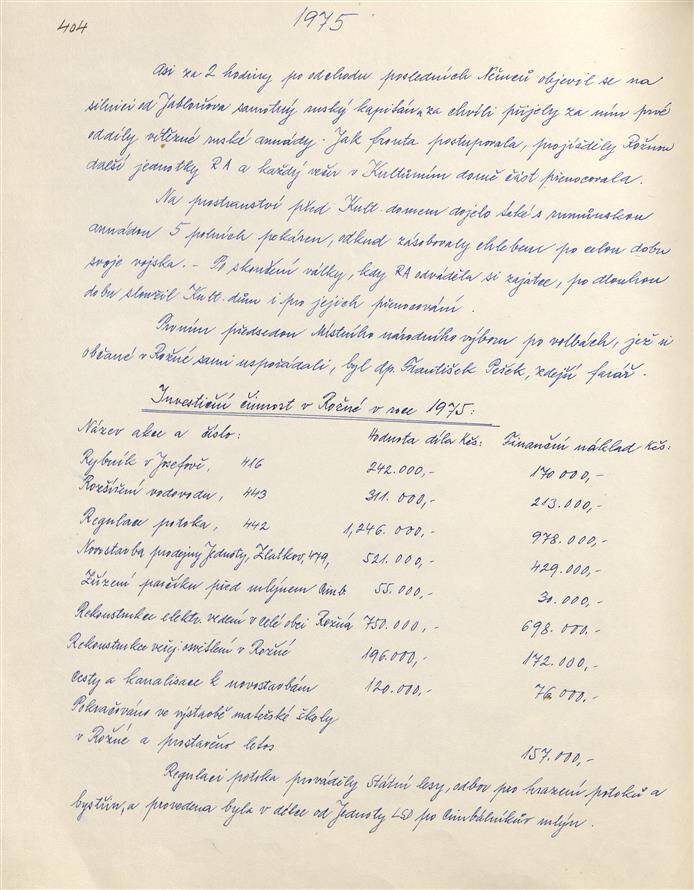 404
1975
Asi za 2 hodiny po odchodu posledních Němců objevil se na
silnici od Jabloňova samotný ruský kapitán, za chvíli přijely za ním prvé
oddíly vítězné ruské armády. Jak fronta postupovala, projížděly Rožnou
další jednotky RA a každý večer v Kulturním domě část přenocovala.
Na prostranství před Kult. domem dojelo také s rumunskou
armádou 5 polních pekáren, odkud zásobovaly chlebem po celou dobu
svoje vojska. - Po skončení války, kdy RA odváděla si zajatce, po dlouhou
dobu sloužil Kult. dům i pro jejich přenocování.
Prvním předsedou Místního národního výboru po volbách, jež si
občané v Rožné sami uspořádali, byl dp. František Pešek, zdejší farář.
Investiční činnost v Rožné v roce 1975:
Název akce a číslo: Hodnota díla Kčs: Finanční náklad Kčs:
Rybník v Josefově, 416 242.000,- 170 000,-
Rozšíření vodovodu, 443 311. 000,- 213.000,-
Regulace potoka, 442 1,246. 000,- 978.000,-
Novostavba prodejny Jednoty, Zlatkov, 479, 521.000,- 429.000,-
Zřízení parčíku před mlýnem Cimb. 55.000,- 30.000,-
Rekonstrukce elektr. vedení v celé obci Rožná 750.000,- 698.000.-
Rekonstrukce veřej. osvětlení v Rožné 196.000,- 172.000,-
Cesty a kanalisace k novostavbám 120.000,- 76 000.-
Pokračováno ve výstavbě mateřské školy
v Rožné a prostavěno letos 157.000,-
Regulaci potoka prováděly Státní lesy, odbor pro hrazení potoků a
bystřin, a provedena byla v délce od Jednoty LSD po Cimbálníkův mlýn.